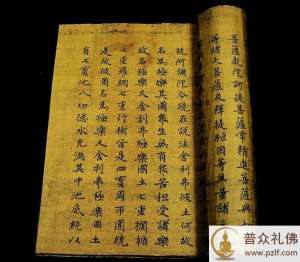 菩薩陀阿提菩薩常精進菩薩與
等諸大菩薩及釋提桓因等無量諸
號阿彌陀今現在說法舍利弗彼土何故
名為極樂其國眾生無有眾苦但受諸樂
故名極樂又舍利弗極樂國土七重欄楯
七重羅網七重行樹皆是四寶周帀圍繞
是故彼國名為極樂又舍利弗極樂國土
有七寶池八功德水充滿其中池底純以
普众礼佛
www.pzlf.com